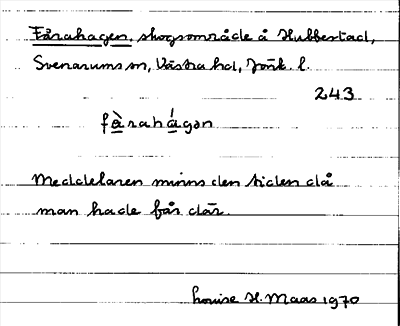 Fårahagen, skogsområde å Hubbestad,
Svenarums sn, Västra hd, Jönk. l.
243
fà̱rahá̱gən
Meddelaren minns den tiden då
man hade får där.
Louise H. Maas 1970